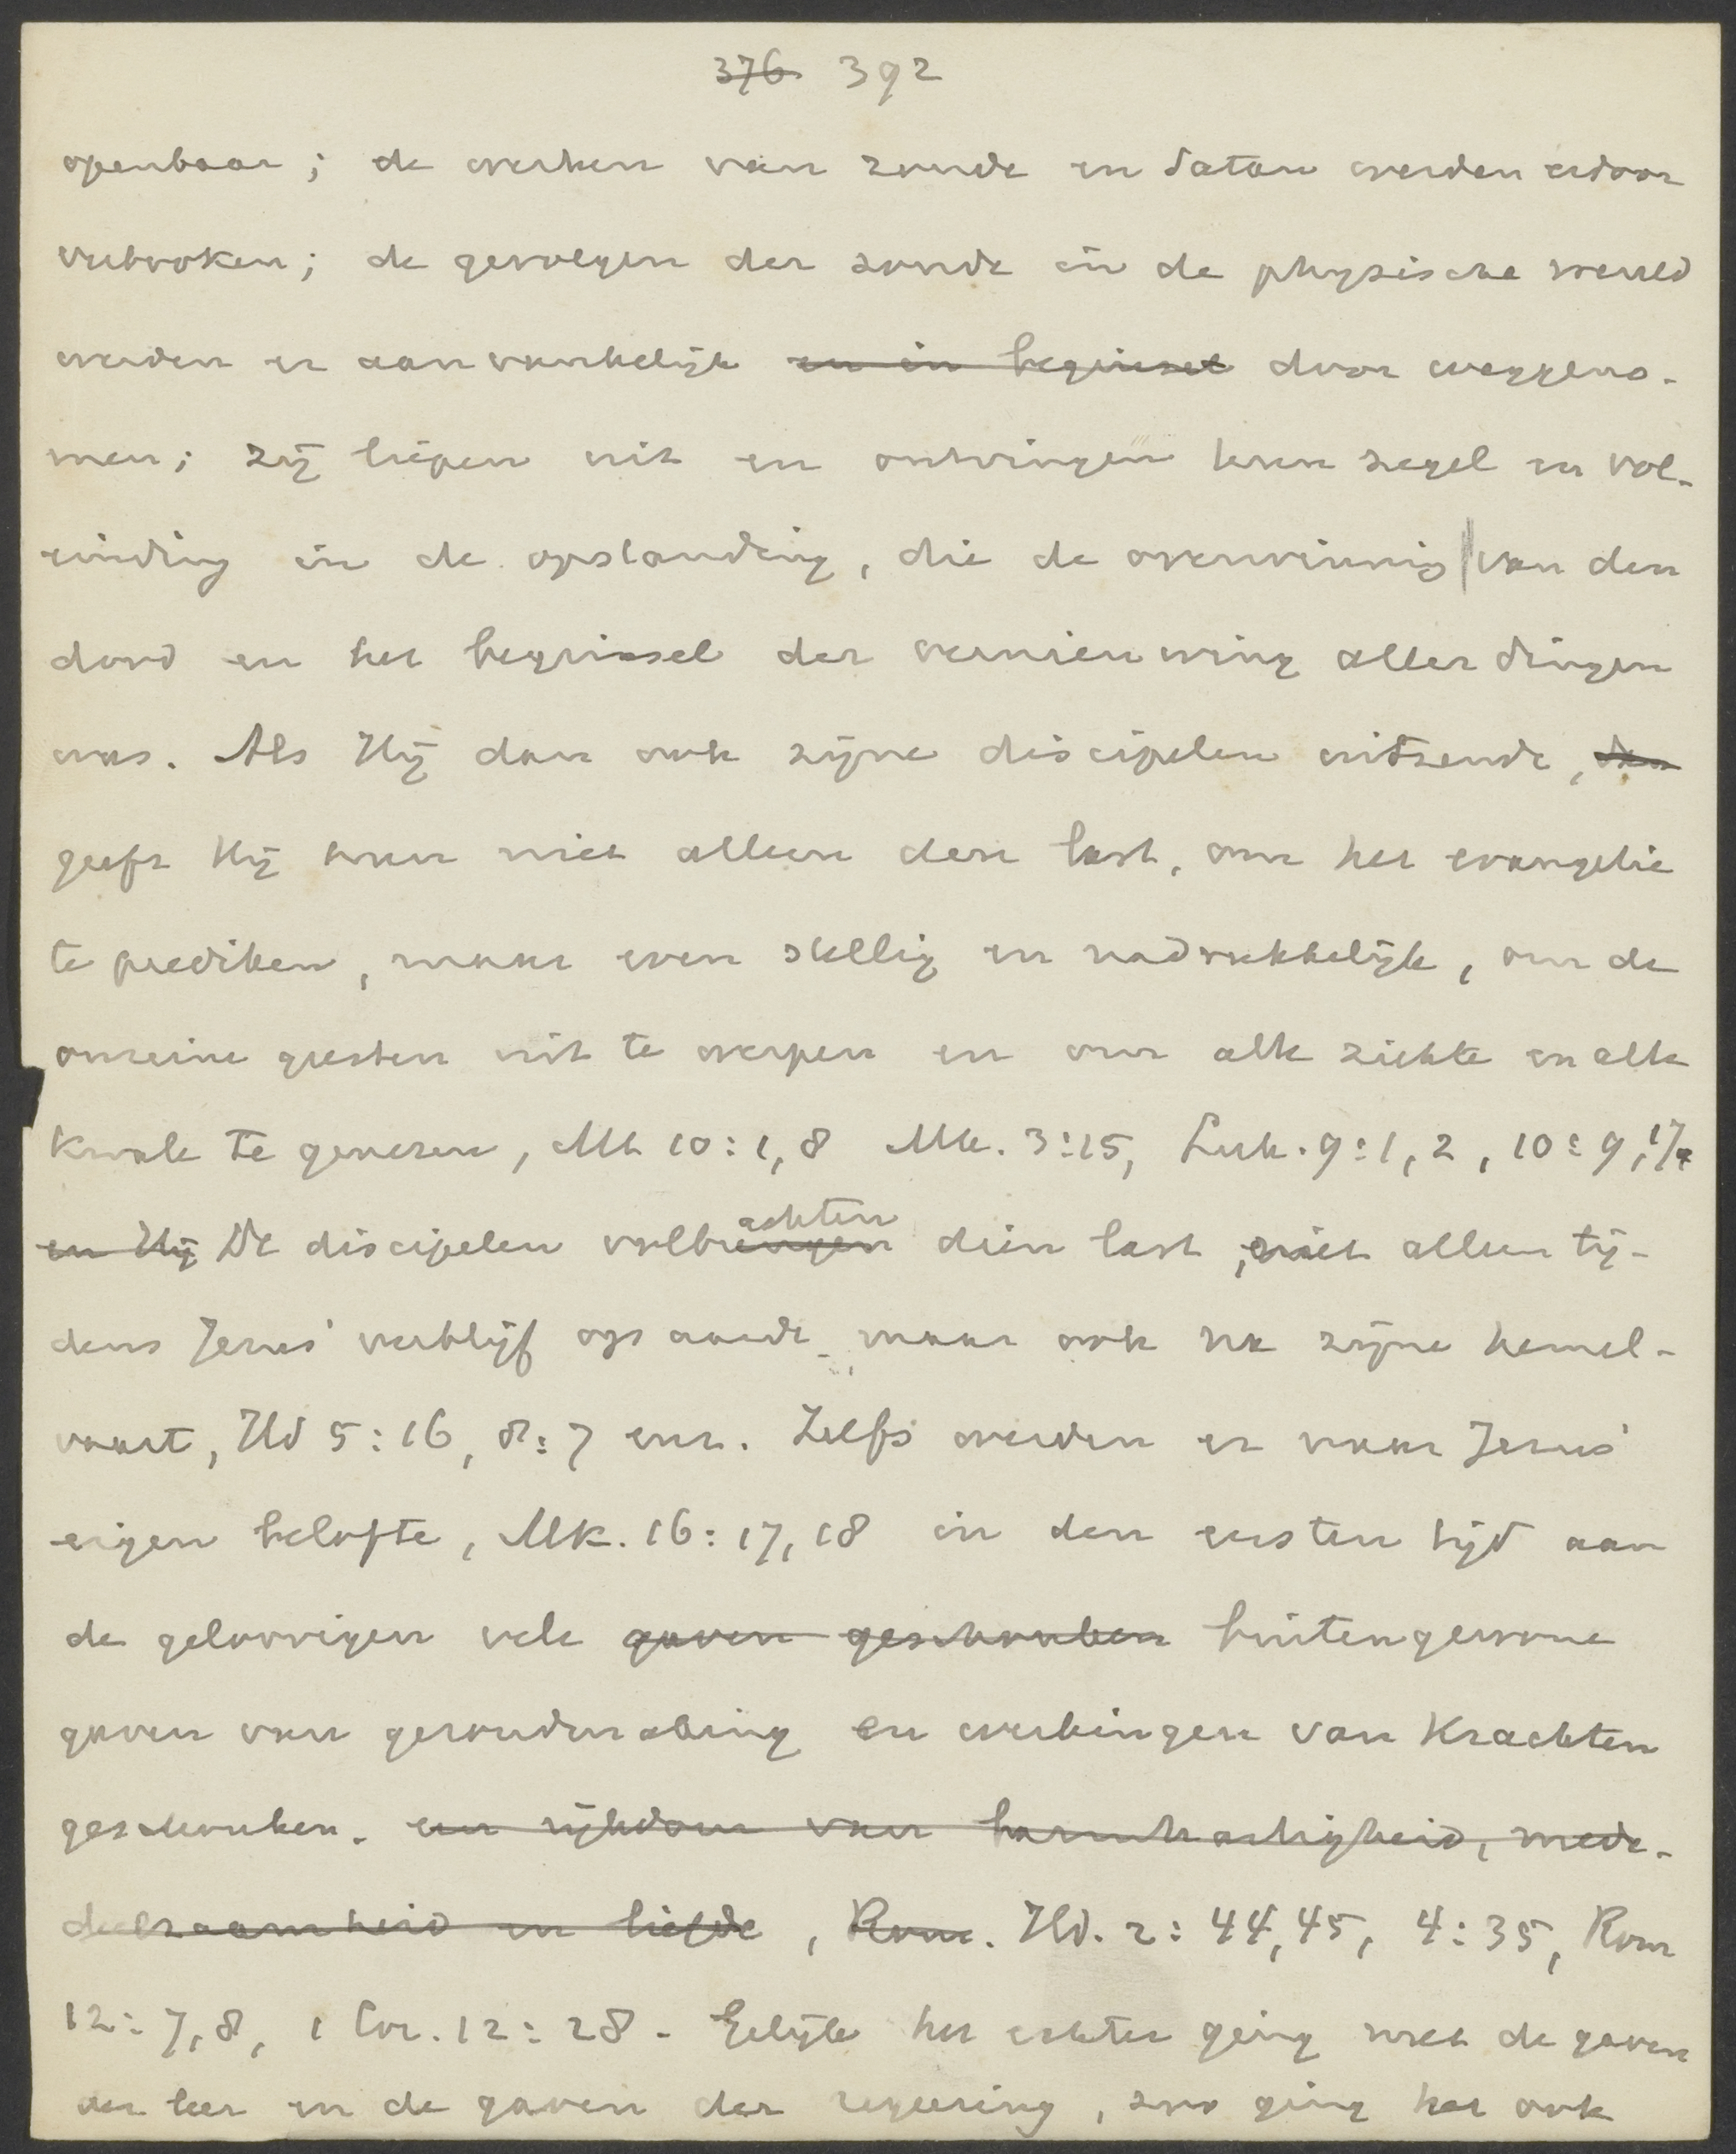 376 392
openbaar; de werken van zonde en Satan werden erdoor
verbroken; de gevolgen der zonde in de physische wereld
werden er aanvankelijk en in beginsel door weggeno-
men; zij liepen uit en ontvingen hun zegel en vol-
einding in de opstanding, die de overwinning van den
dood en het beginsel der vernieuwing aller dingen
was. Als Hij dan ook zijne discipelen uitzendt,
geeft Hij hun niet alleen den last, om het evangelie
te prediken, maar even stellig en nadrukkelijk, om de
onreine geesten uit te werpen en om alle ziekte en alle
kwale te genezen, Mt 10:1,8 Mk. 3:15, Luk. 9:1,2, 10:9,17.
en Hij De discipelen volbrengen achten dien last, niet alleen tij-
dens Jezus' verblijf op aarde maar ook na zijne hemel-
vaart, Hd 5:16, 8:7 enz. Zelfs werden er naar Jezus'
eigen belofte, Mk. 16:17,18 in den eersten tijd aan
de geloovigen vele gaven geschonken buitengewone
gaven van gezondmaking en werkingen van krachten
geschonken. een rijkdom van barmhartigheid, mede-
deelzaamheid en liefde, Rom. Hd. 2:44,45, 4:35, Rom
12:7,8, 1 Cor. 12:28. Gelijk het echter ging met de gaven
der leer en de gaven der regeering, zoo ging het ook